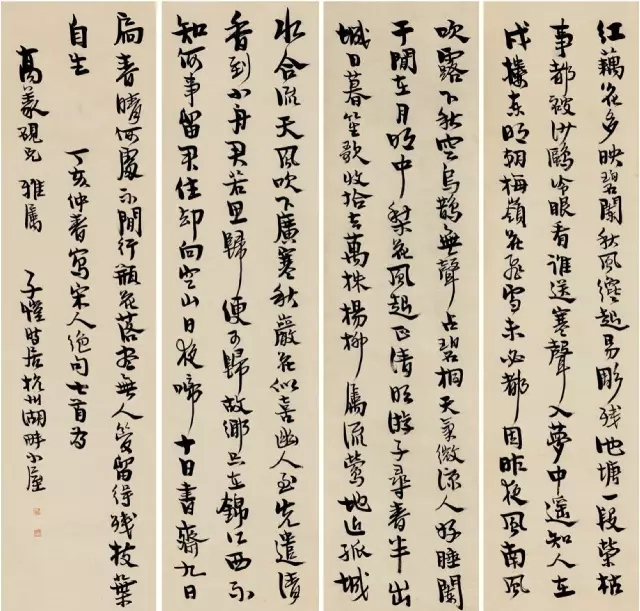 紅藕花多映碧闌秋風纔起易彫殘池塘一段榮枯
事都被沙鷗冷眼看誰送寒聲入夢中遥知人在
戍樓東明朝梅嶺花飛雪未必都因昨夜風南風
吹露下秋空烏鵲無聲占碧桐天氣微涼人好睡闌
干閒在月明中棃花風起正清明游子尋春半出
城日暮笙歌收拾去萬株楊柳屬流鶯地近孤城
水合流天風吹下廣寒秋巖花似喜幽人至先遣清
香到小舟君若思歸便可歸故鄉只在錦江西不
知何事留君住却向空山日夜啼十日書齋九日
扃春晴何處不閒行瓶花落盡無人管留得殘枝葉
自生 丁亥仲春寫宋人絕句七首为
高羲硯兄 雅屬 子愷時居杭州湖畔小屋